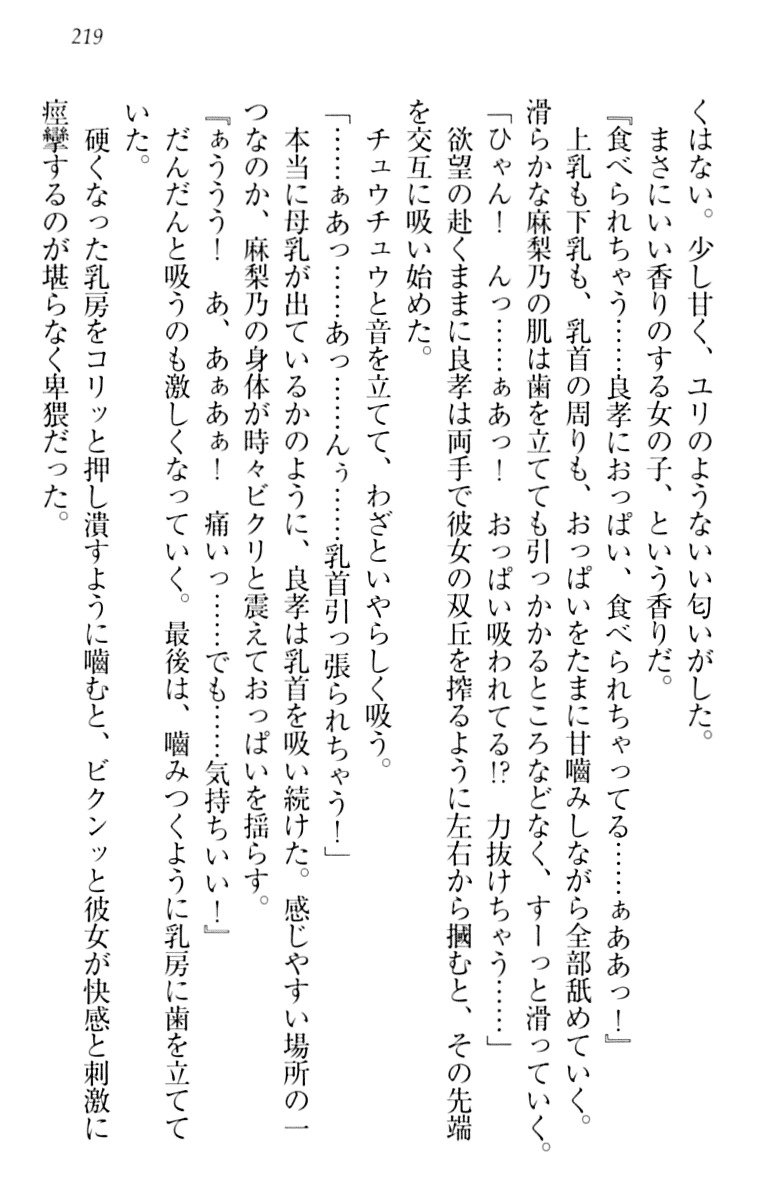 219
くはない。少し甘く、ユリのようないい匂いがした。
まさにいい香りのする女の子、という香りだ。
『食べられちゃう……良孝におっぱい、食べられちゃってる……ぁああっ！』
上乳も下乳も、乳首の周りも、おっぱいをたまに甘噛みしながら全部舐めていく。
滑らかな麻梨乃の肌は歯を立てても引っかかるところなどなく、すーっと滑っていく。
「ひゃん！　んっ……ぁあっ！　おっぱい吸われてる!?　力抜けちゃう……」
欲望の赴くままに良孝は両手で彼女の双丘を搾るように左右から摑むと、その先端
を交互に吸い始めた。
チュウチュウと音を立てて、わざといやらしく吸う。
「……ぁあっ……あっ……んぅ……乳首引っ張られちゃう！」
本当に母乳が出ているかのように、良孝は乳首を吸い続けた。感じやすい場所の一
つなのか、麻梨乃の身体が時々ビクリと震えておっぱいを揺らす。
『ぁううう！　あ、あぁあぁ！　痛いっ……でも……気持ちいい！』
だんだんと吸うのも激しくなっていく。最後は、嚙みつくように乳房に歯を立てて
いた。
硬くなった乳房をコリッと押し潰すように嚙むと、ビクンッと彼女が快感と刺激に
痙攣するのが堪らなく卑猥だった。